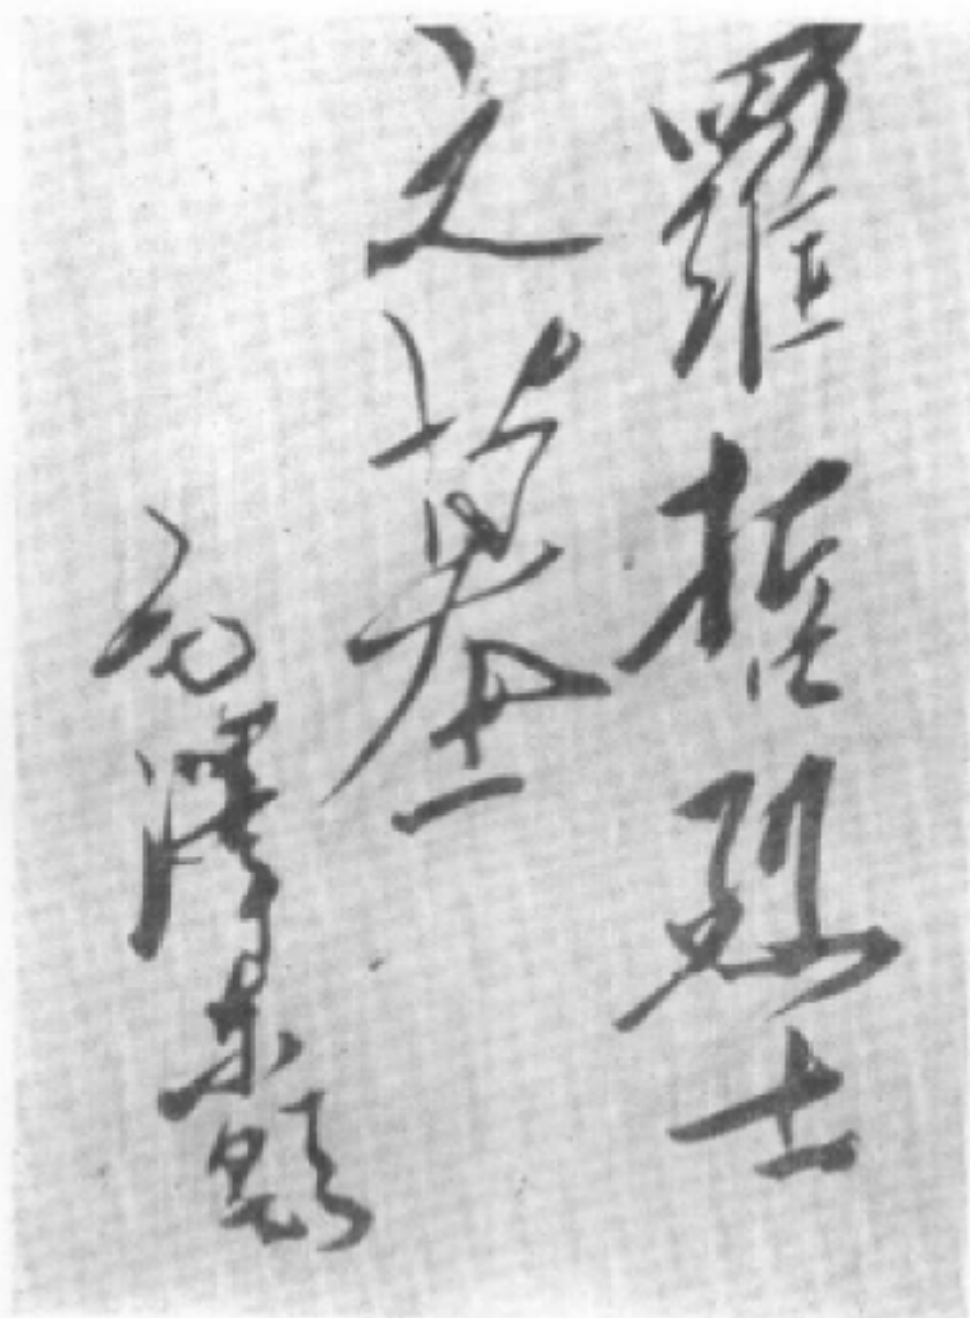 羅哲烈士
之墓
毛澤东题